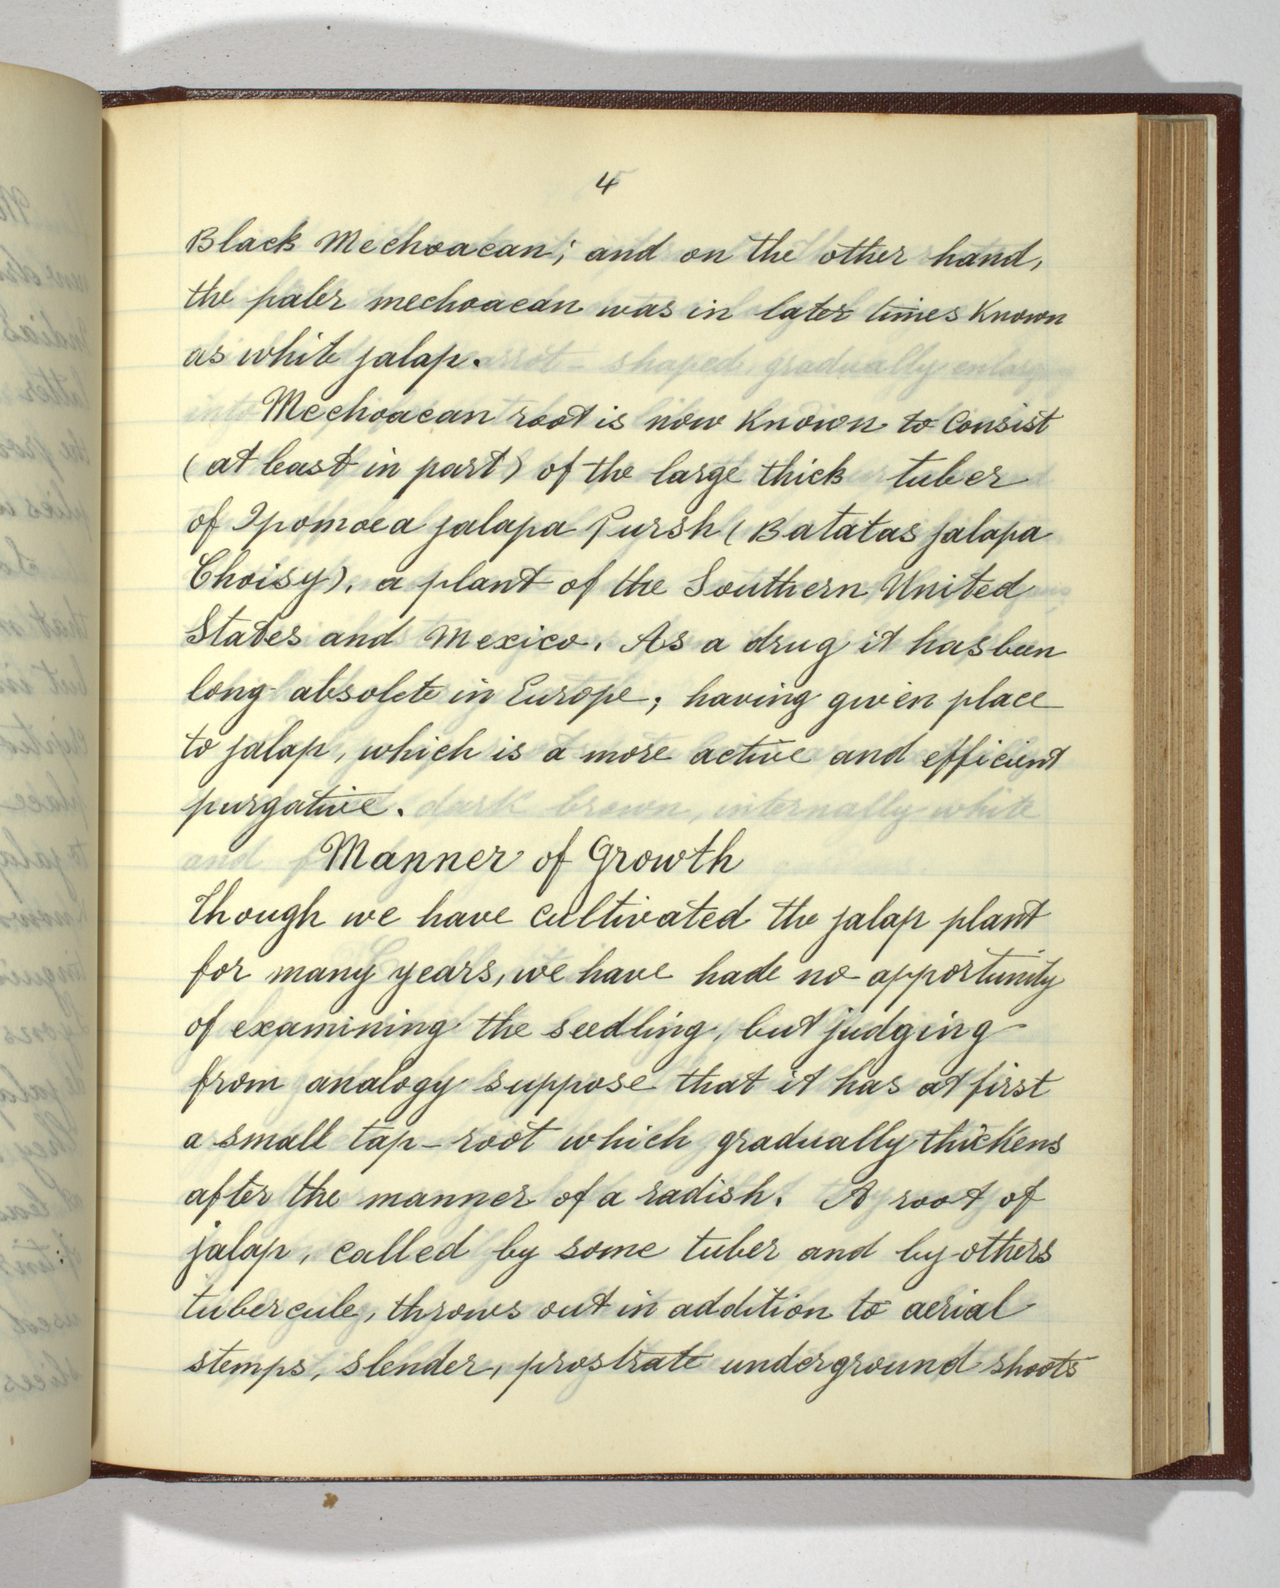 4
Black Mechoacan; and on the other hand,
the paler mechoacan was in later times Known
as white jalap.
Mechoacan root is now Known to Consist
(at least in part) of the large thick tuber
of Ipomoea jalapa Pursh (Batatas jalapa
Choisy), a plant of the Southern United
States and Mexico. As a drug it has been
long absolete in Europe; having given place
to jalap, which is a more active and efficient
purgative.
Manner of Growth
Though we have cultivated the jalap plant
for many years, we have hade no opportunity
of examining the seedling, but judging
from analogy suppose that it has at first
a small tap-root which gradually thickens
after the manner of a radish. A root of
jalap, called by some tuber and by others
tubercule, throws out in addition to aerial
stemps, slender, prostrate underground shoots